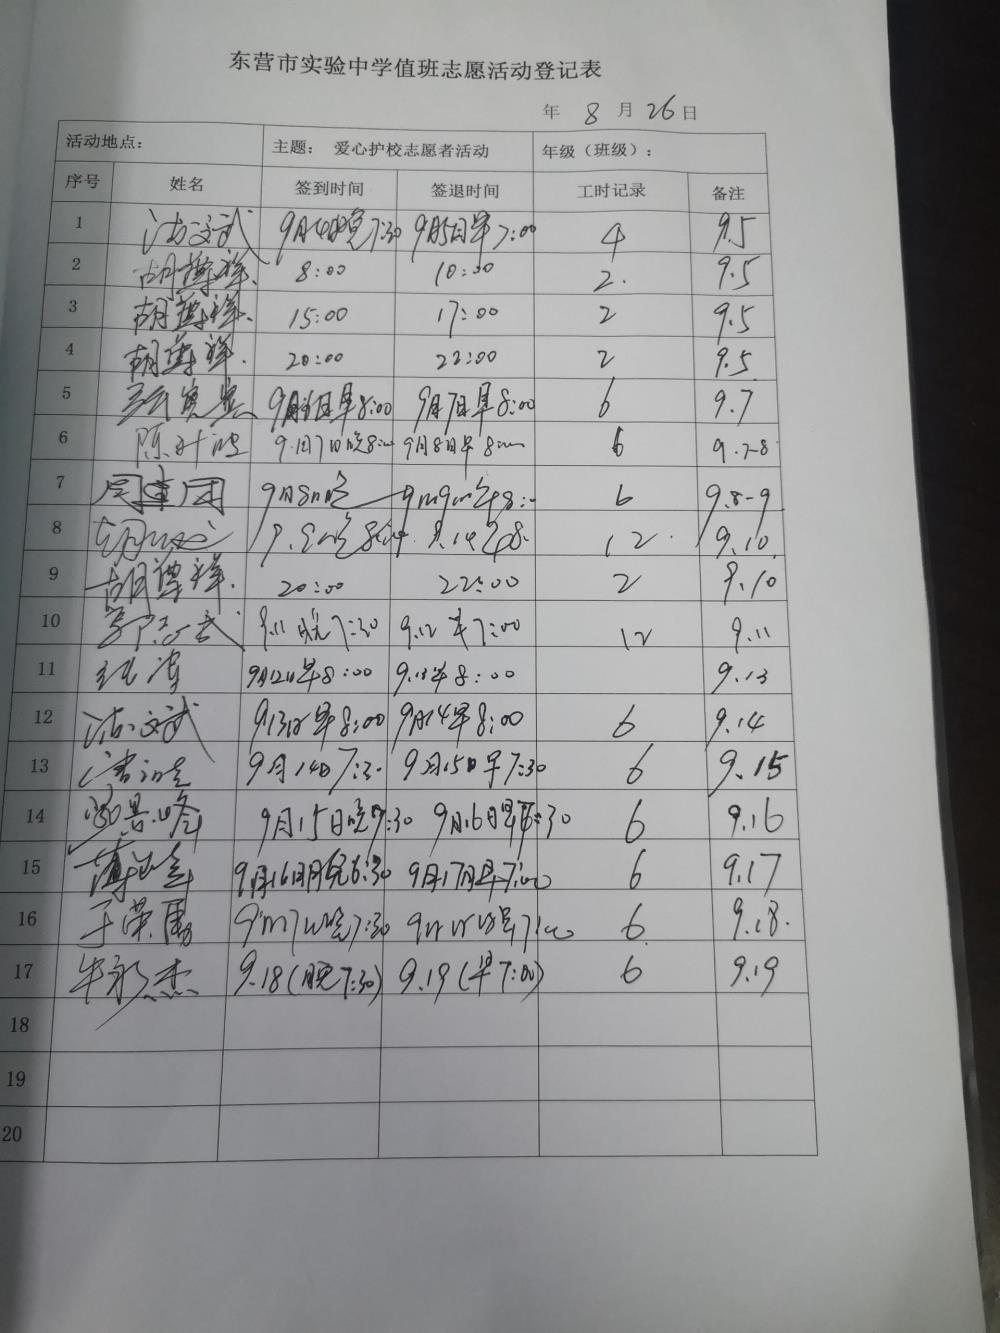 东营市实验中学值班志愿活动登记表
年 8 月 26 日
活动地点： 主题： 爱心护校志愿者活动 年级（班级）：
序号 姓名 签到时间 签退时间 工时记录 备注
1 文武 9月4日晚7:30 9月5日早7:00 4 9.5
2 胡尊祥 8:00 10:00 2. 9.5
3 胡尊祥 15:00 17:00 2 9.5
4 胡尊祥 20:00 22:00 2 9.5
5 9月6日早8:00 9月7日早8:00 6 9.7
6 陈叶 9月7日晚8:00 9月8日早8:00 6 9.7-8
7 9月8日晚 9月9日早8:00 6 9.8-9
8 胡 12 9.10
9 胡尊祥 20:00 22:00 2 9.10
10 武 9.11晚7:30 9.12早7:00 12 9.11
11 9月12日早8:00 9.13早8:00 9.13
12 文武 9月13日早8:00 9月14早8:00 6 9.14
13 9月14日7:30 9月15日早7:30 6 9.15
14 景峰 9月15日晚7:30 9月16日早 :30 6 9.16
15 薄 9月16日晚6:30 9月17日早7:00 6 9.17
16 于荣 9月17日晚7:30 9月18日早7:00 6 9.18.
17 牛永杰 9.18(晚7:30) 9.19(早7:00) 6 9.19
18
19
20